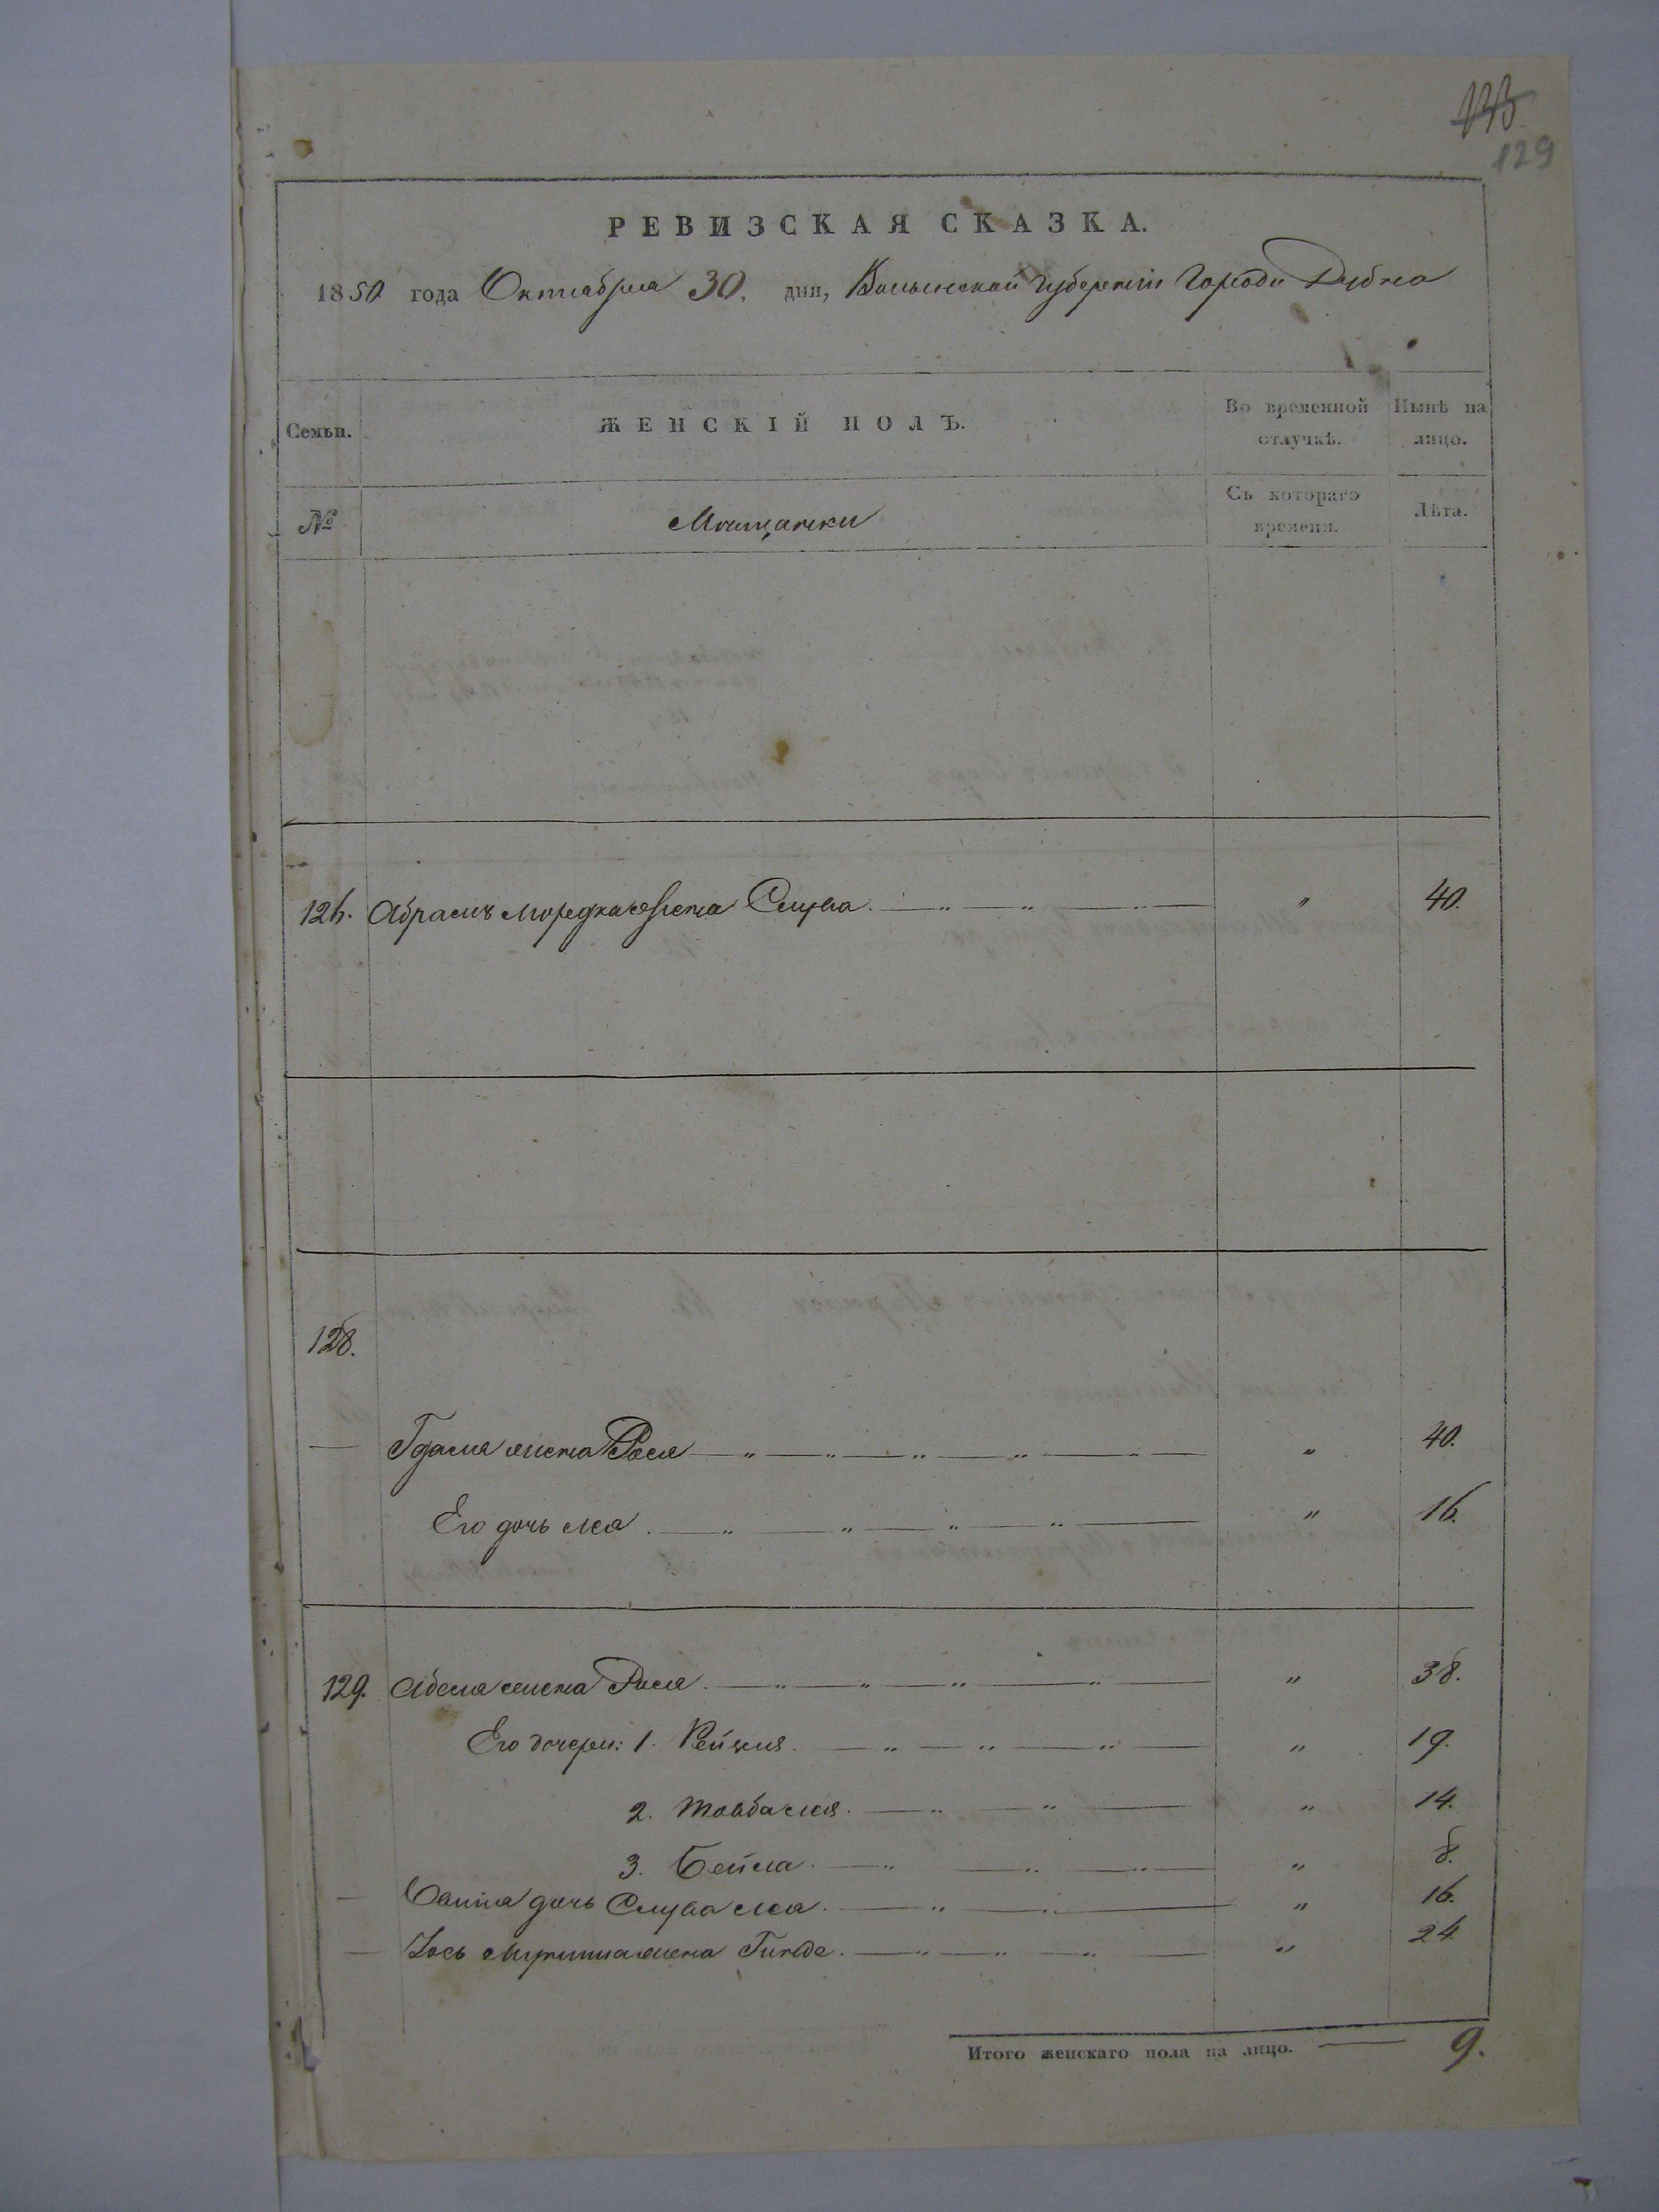 133
129
РЕВИЗСКАЯ СКАЗКА.
1850 года Октября 30. дня, Волынской Губернии Города Дубно
Семьи. ЖЕНСКІЙ ПОЛЪ. Во временной отлучкѣ. Нынѣ на лицо.
№ Мѣщанки Съ котораго времени. Лѣта.
126. Абрамъ Мордха жена Слува. " 40.
128.
Гдаля жена Рося " 40.
Его дочь Леа. " 16.
129. Абеля жена Рися. " 38.
Его дочери: 1. Рейзля. " 19.
2. Товба Лея. " 14.
3. Бейла. " 8.
дочь Слува Леа. " 16.
Іось жена Гинде. " 24.
Итого женскаго пола на лицо. 9.